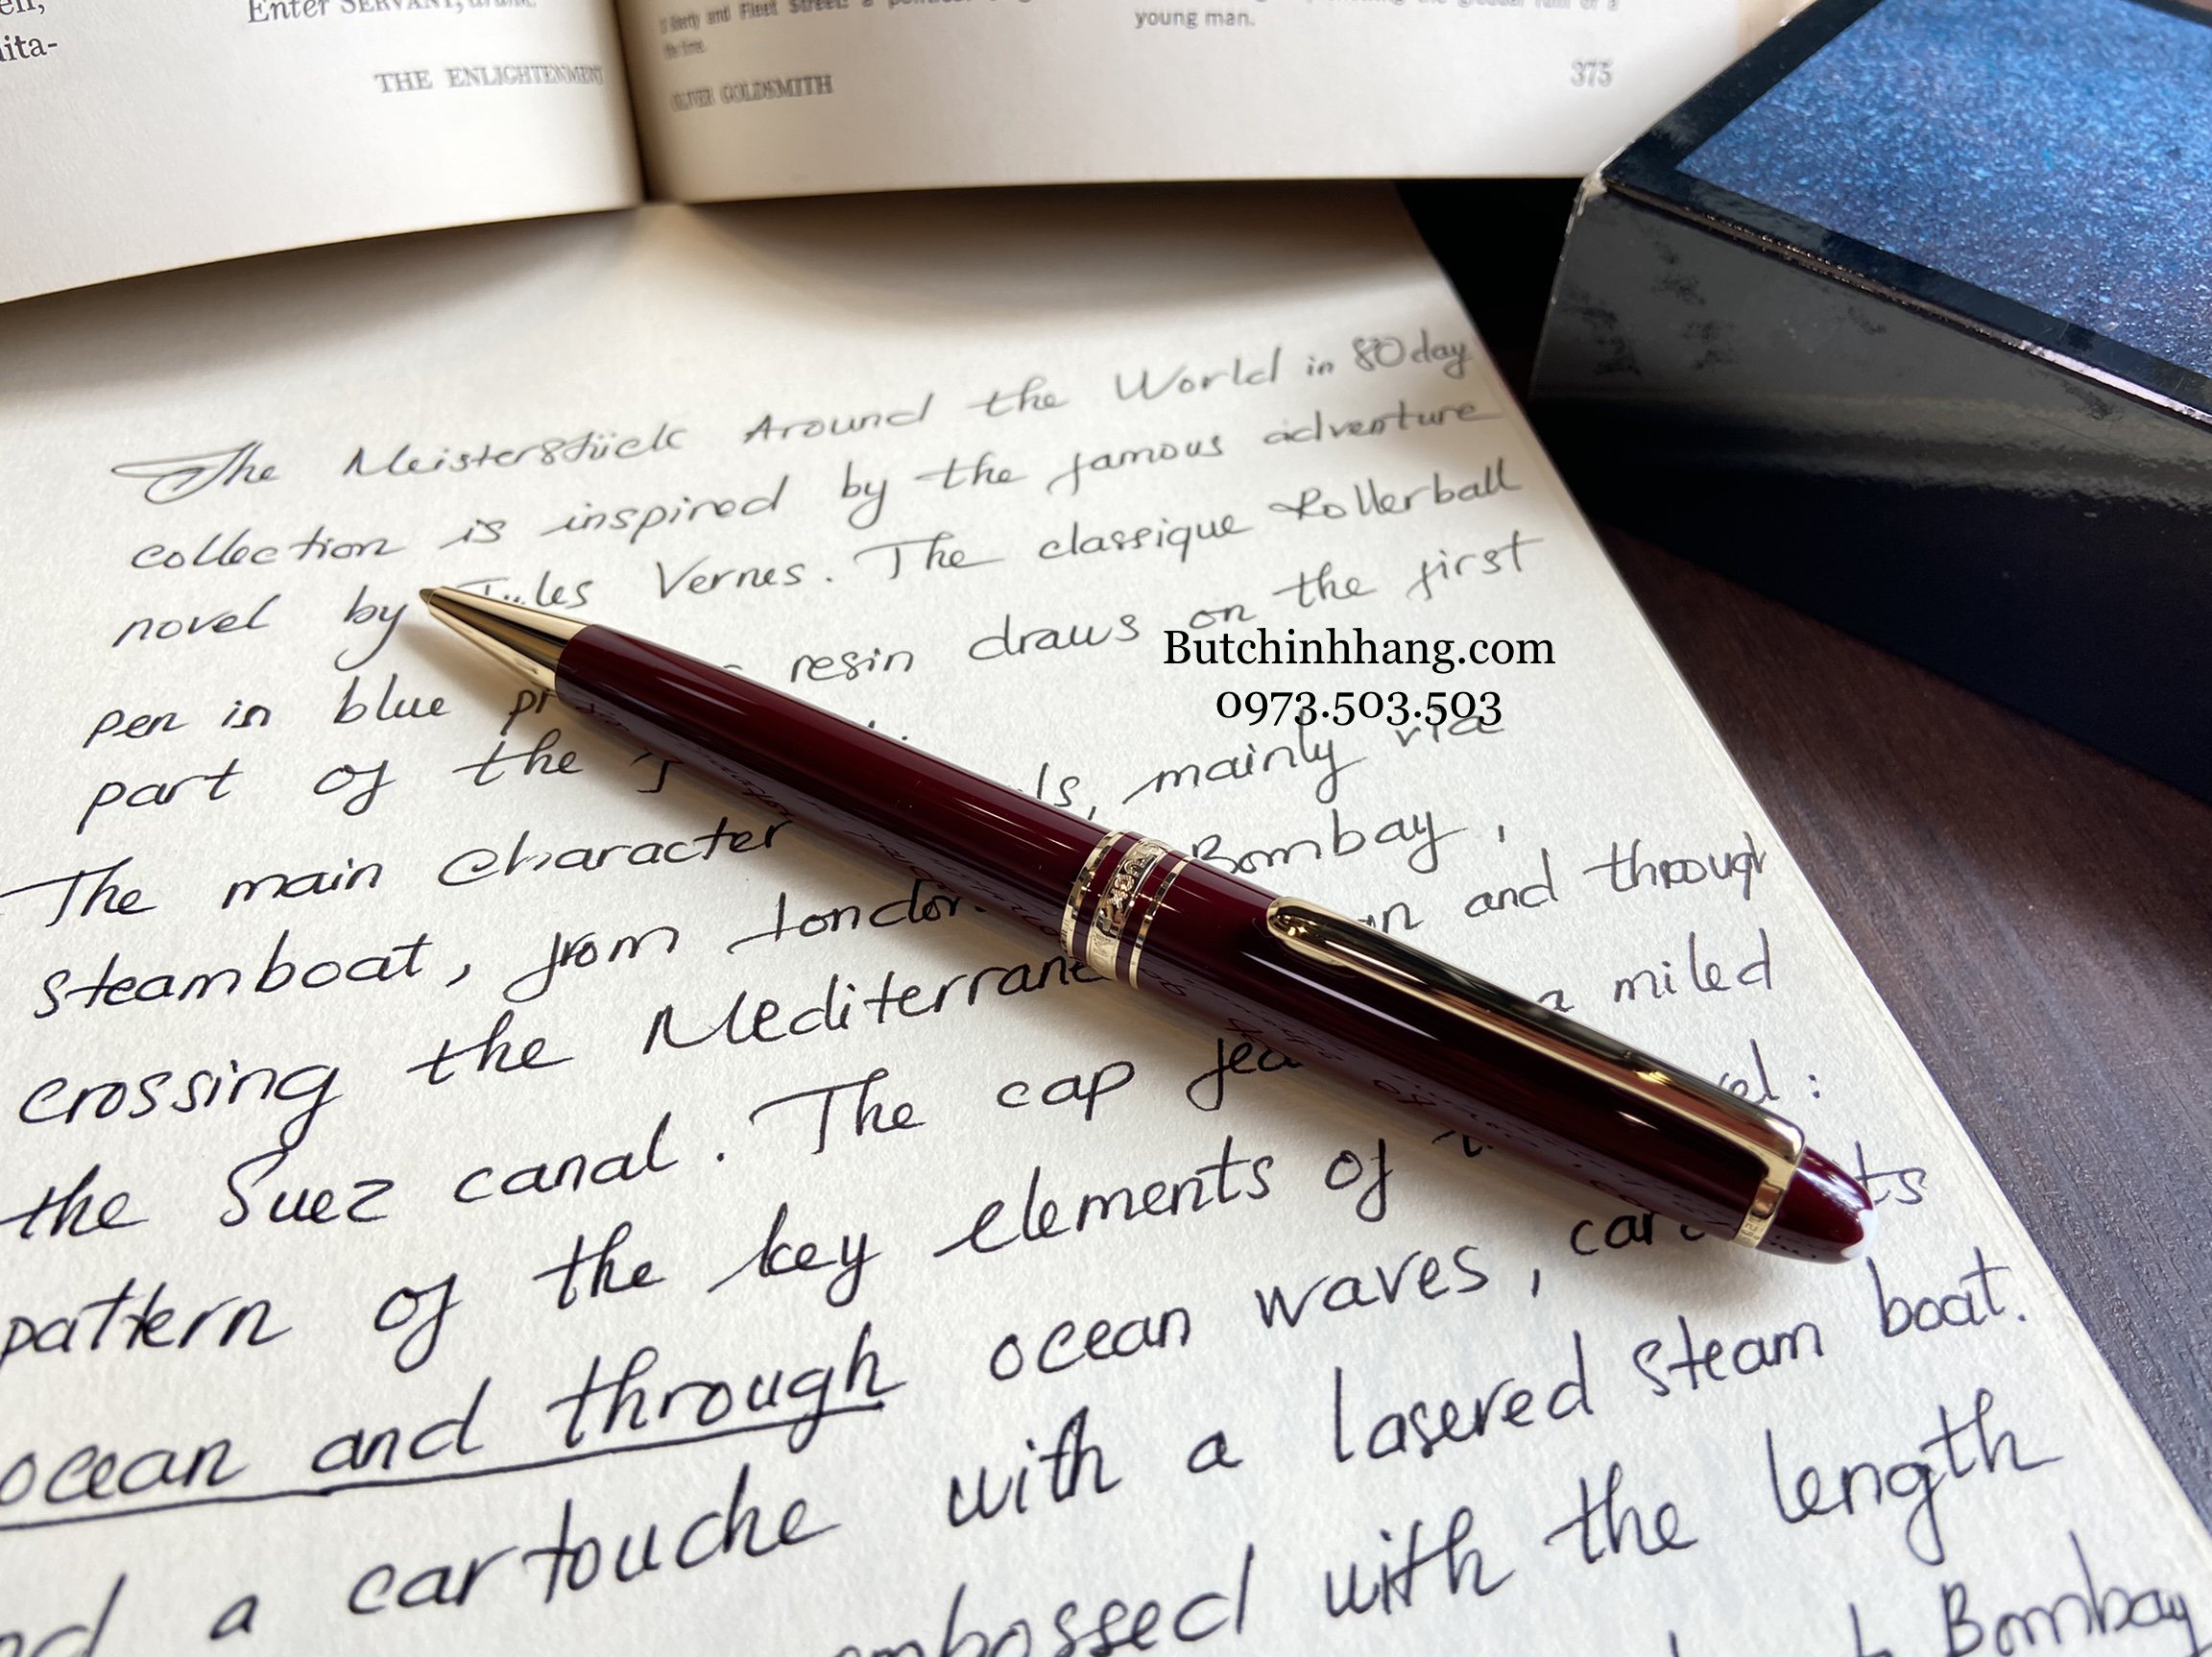 ita-
Enter SERVANT, drunk.
THE ENLIGHTENMENT
young man.
OLIVER GOLDSMITH
375
The Meisterstück Around the World in 80 day
collection is inspired by the famous adventure
novel by Jules Vernes. The classique Rollerball
pen in blue resin draws on the first
part of the mainly via
Butchinhhang.com
0973.503.503
The main character Bombay,
steamboat, from London and through
crossing the Mediterrane a miled
the Suez canal. The cap
pattern of the key elements of
ocean and through ocean waves,
a cartouche with a lasered steam boat.
embossed with the length
Bombay